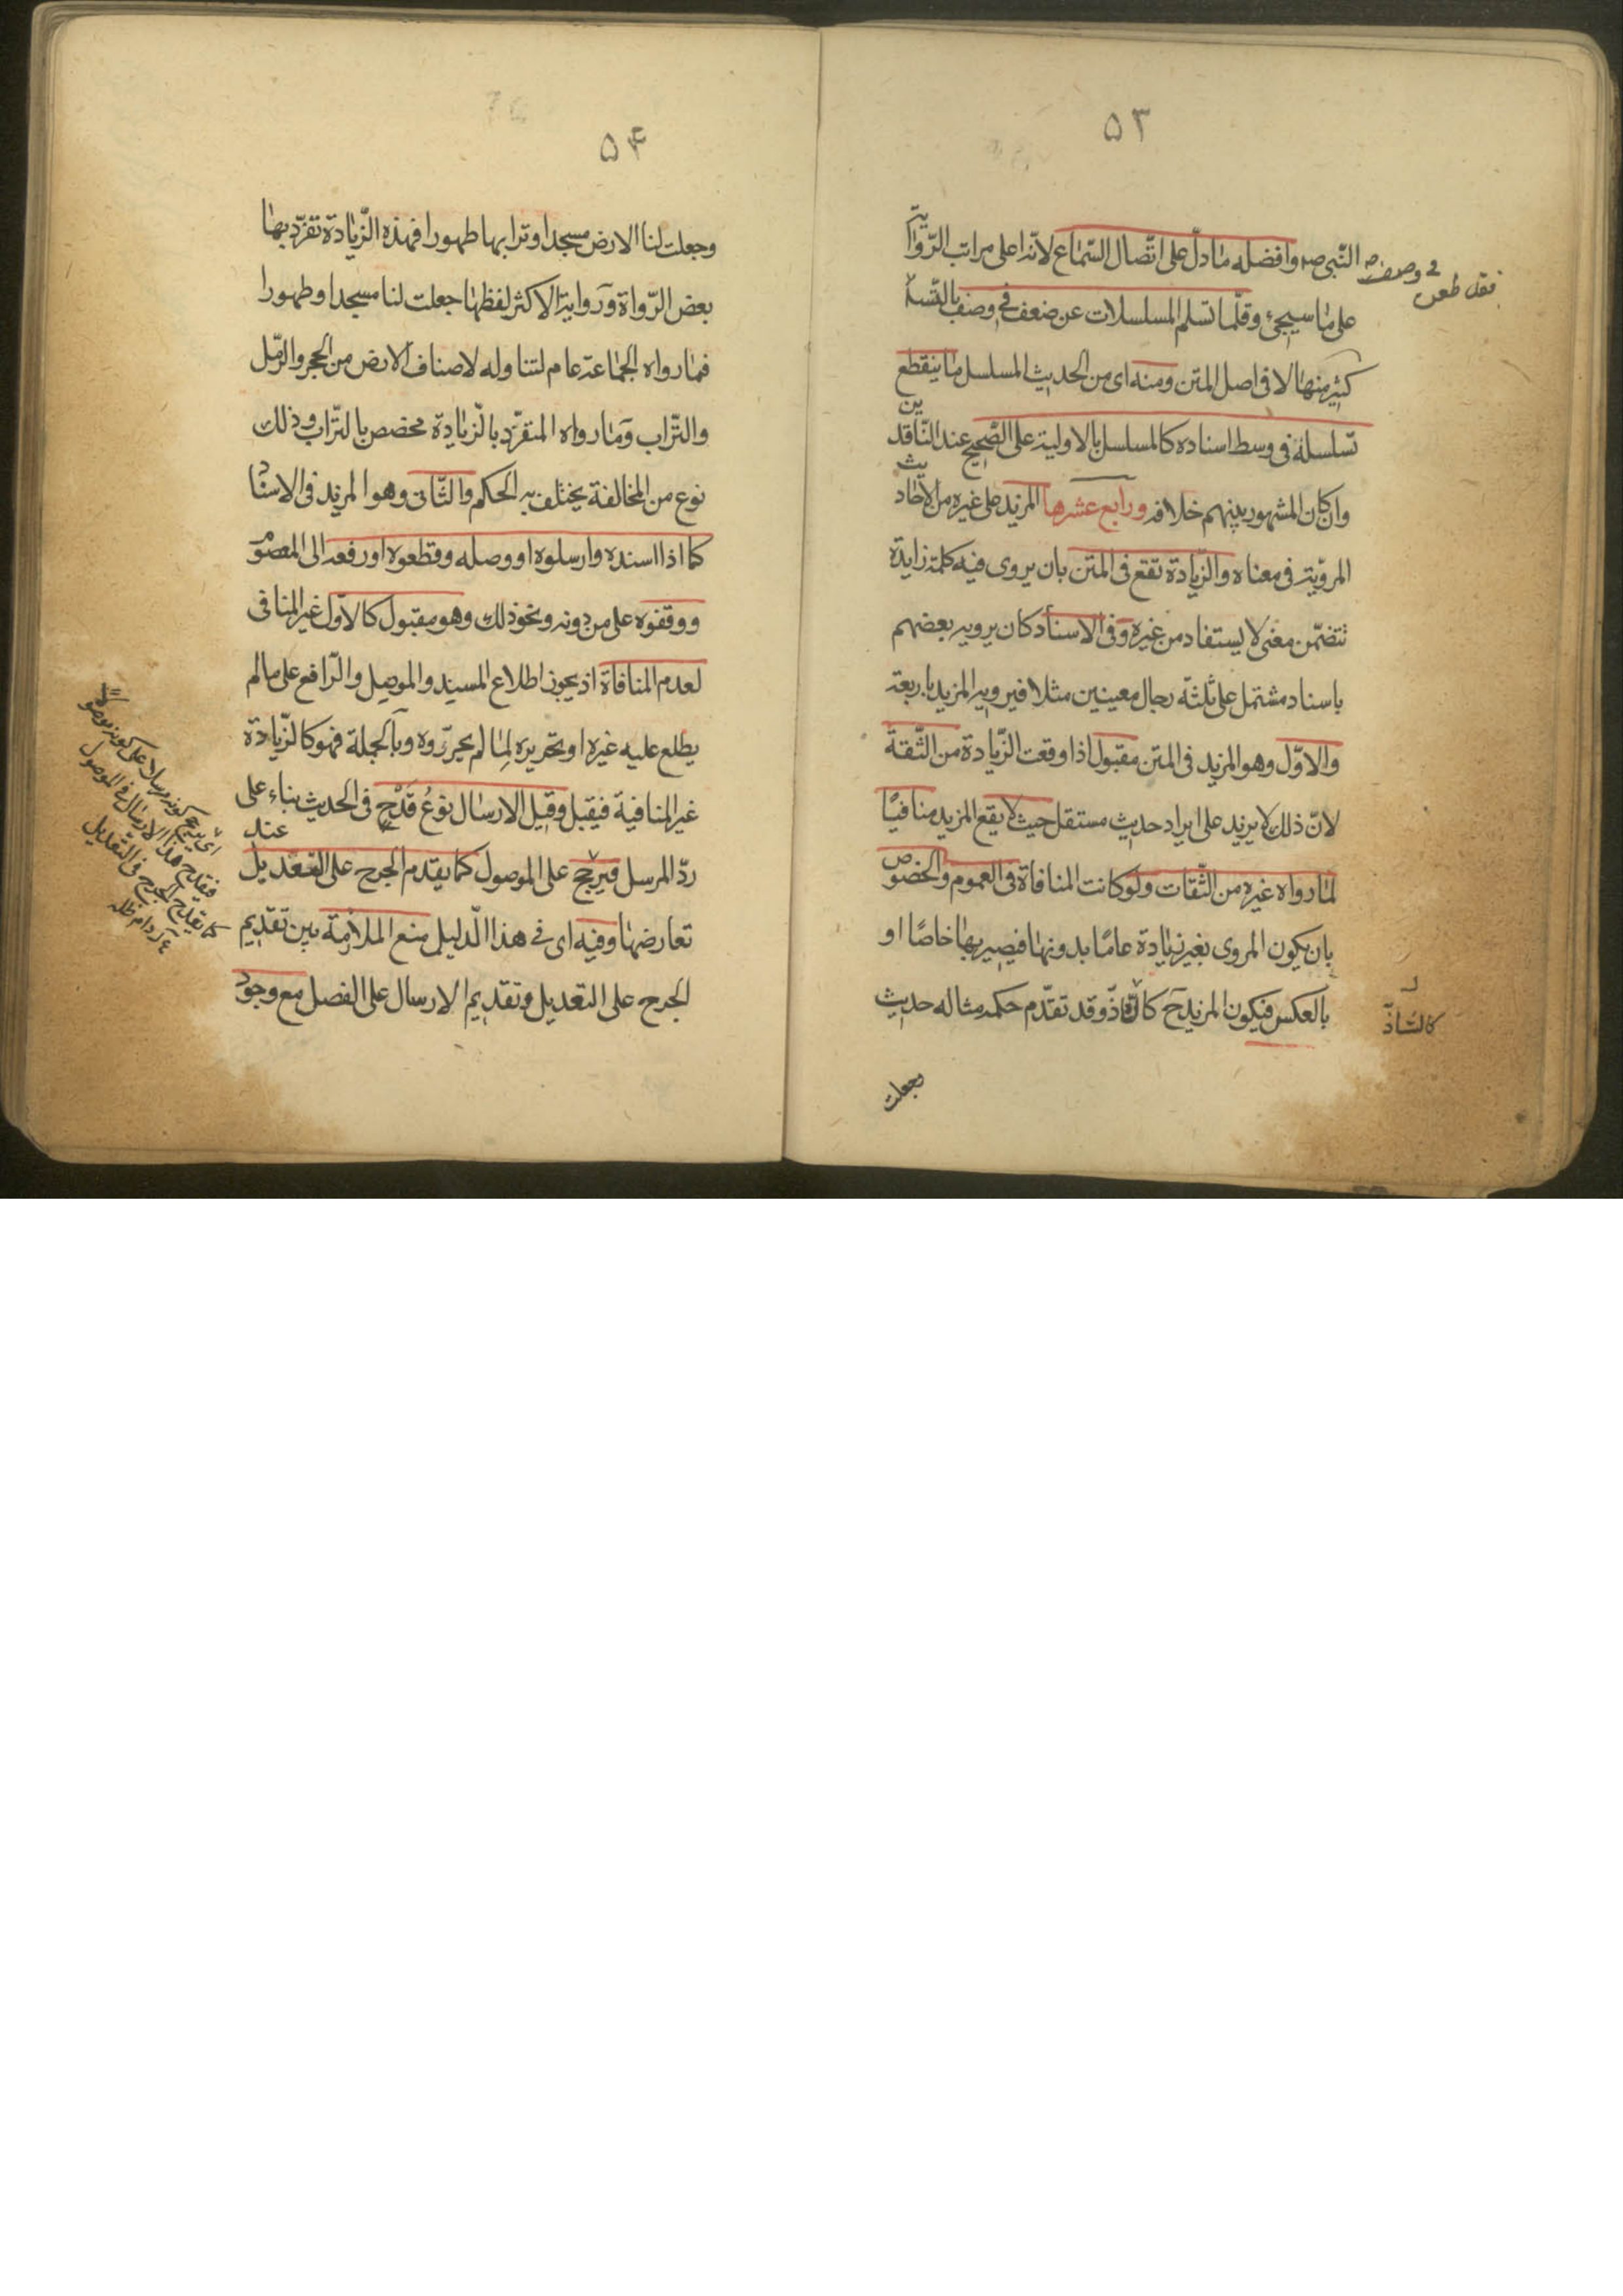 ٥٣
النّبى ص وافضله ما دلّ على اتّصال السّماع لانّه اعلى مراتب الرّواية
على ما سيجئ وقلّما تسلم المسلسلات عن ضعف فى وصف بالتّسلسل
فقد طعن فى وصف
كثير منها لا فى اصل المتن ومنه اى من الحديث المسلسل ما ينقطع
تسلسله فى وسط اسناده كالمسلسل بالاولية على الصّحيح عند النّاقدين
وان كان المشهور بينهم خلافه ورابع عشرها المزيد على غيره من الاحاديث
المرويّة فى معناه والزّيادة تقع فى المتن بان يروى فيه كلمة زايدة
تتضمّن معنى لا يستفاد من غيره وفى الاسناد كان يرويه بعضهم
باسناد مشتمل على ثلثة رجال معينين مثلا فيرويه المزيد باربعة
والاوّل وهو المزيد فى المتن مقبول اذا وقعت الزّيادة من الثّقة
لانّ ذلك لا يزيد على ايراد حديث مستقل حيث لا يقع المزيد منافيًا
لما رواه غيره من الثّقات ولو كانت المنافاة فى العموم والخصوص
بان يكون المروى بغير زيادة عامًا بدونها فيصير بها خاصًا او
بالعكس فيكون المزيد ح كالشّاذّ وقد تقدّم حكمه مثاله حديث
كالشاذّ
وجعلت
٥۴
وجعلت لنا الارض مسجدا وترابها طهورا فهذه الزّيادة تفرّد بها
بعض الرّواة ورواية الاكثر لفظها جعلت لنا مسجدا وطهورا
فما رواه الجماعة عام لتناوله لاصناف الارض من الحجر والرّمل
والتّراب وما رواه المتفرّد بالزّيادة مخصص بالتراب وذلك
نوع من المخالفة يختلف به الحكم والثّانى وهو المزيد فى الاسناد
كما اذا اسنده وارسلوه او وصله وقطعوه او رفعه الى المعصوم
ووقفوه على من دونه ونحو ذلك وهو مقبول كالاوّل غير المنافى
لعدم المنافاة اذ يجوز اطلاع المسند والموصل والرّافع على ما لم
يطلع عليه غيره او تحريره لما لم يحرّروه وبالجملة فهو كالزّيادة
غير المنافية فيقبل وقيل الارسال نوعُ قَدْحٍ فى الحديث بناء على
ردّ المرسل فيرجّح على الموصول كما يقدم الجرح على التعديل عند
تعارضهما وفيه اى فى هذا الدّليل منع الملازمة بين تقديم
الجرح على التعديل وتقديم الارسال على الفصل مع وجود
اى يرجح كونه مرسلا على كونه موصولا
فيقدح هذا الارسال فى الموصول
كما يقدح الجرح فى التعديل